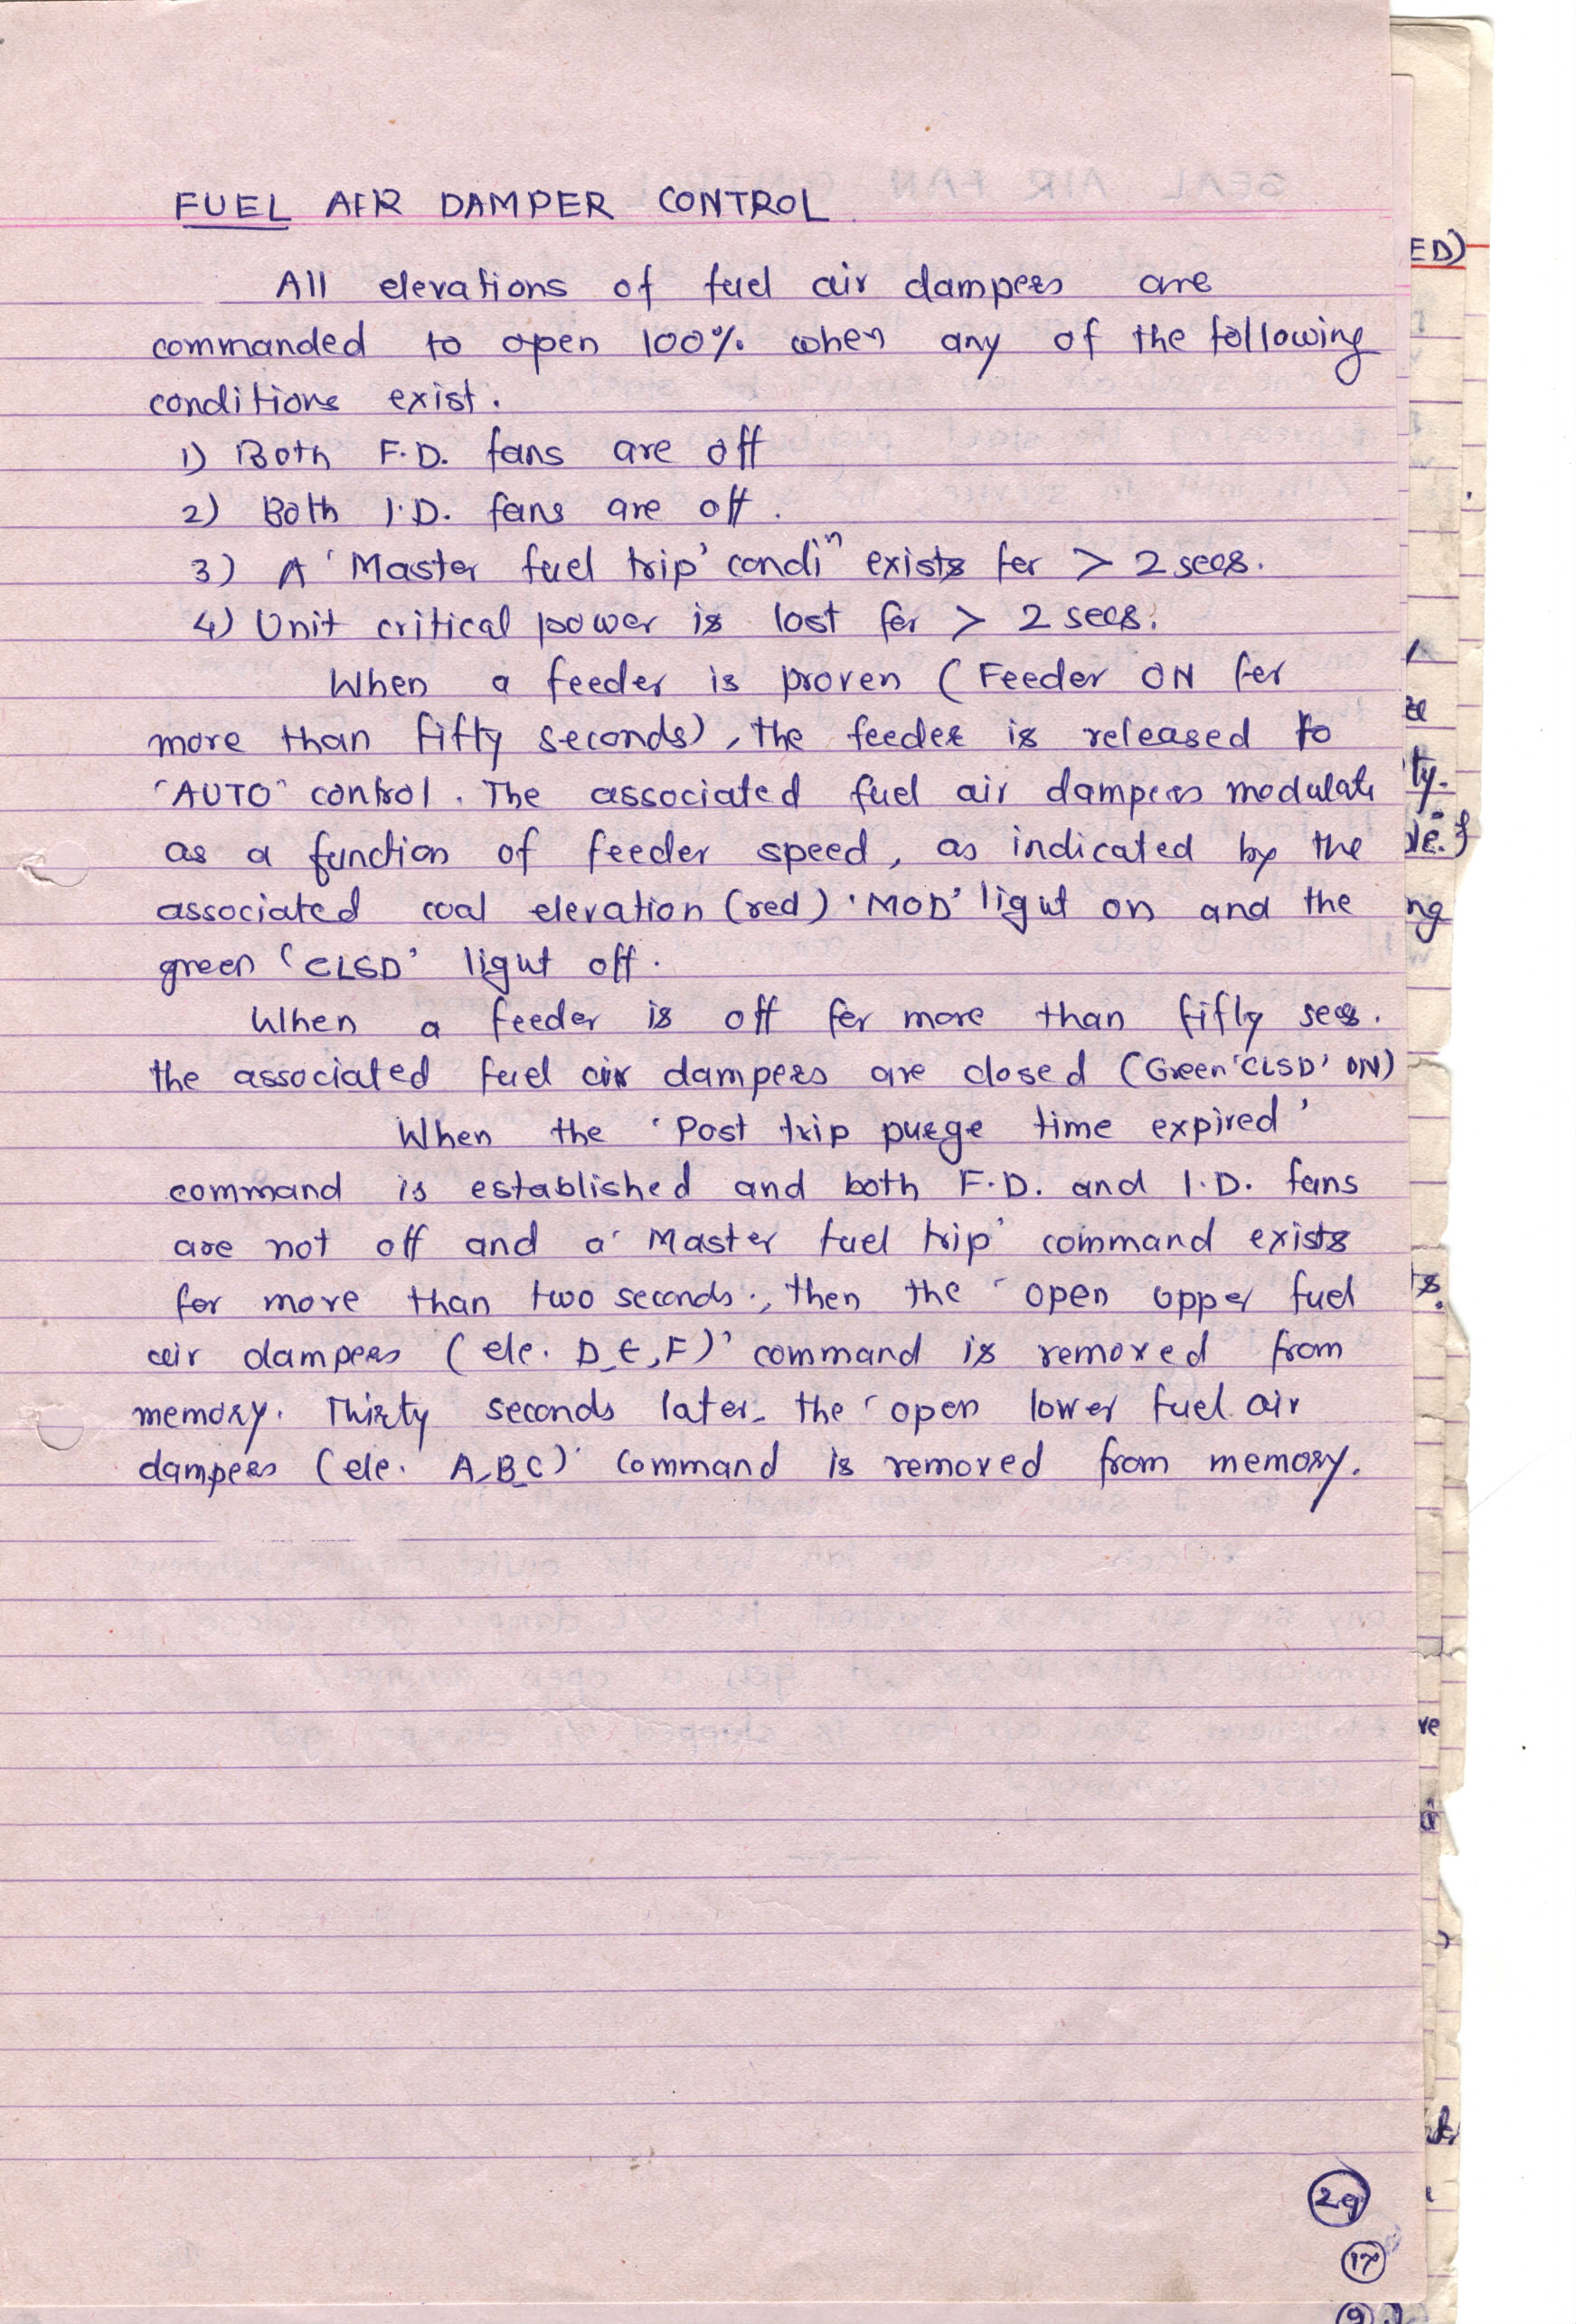 FUEL AIR DAMPER CONTROL
All elevations of fuel air dampers are
commanded to open 100% when any of the following
conditions exist.
1) Both F.D. fans are off
2) Both I.D. fans are off.
3) A 'Master fuel trip' condiⁿ exists for > 2 secs.
4) Unit critical power is lost for > 2 secs.
When a feeder is proven (Feeder ON for
more than fifty seconds), the feeder is released to
'AUTO' control. The associated fuel air dampers modulate
as a function of feeder speed, as indicated by the
associated coal elevation (red) 'MOD' light on and the
green 'CLSD' light off.
When a feeder is off for more than fifty secs.
the associated fuel air dampers are closed (Green 'CLSD' ON)
When the 'Post trip purge time expired'
command is established and both F.D. and I.D. fans
are not off and a 'Master fuel trip' command exists
for more than two seconds., then the 'open upper fuel
air dampers (ele. D,E,F)' command is removed from
memory. Thirty seconds later, the 'open lower fuel air
dampers (ele. A,B,C)' command is removed from memory.
29
17
9
ED)
ty.
ng
ts.
ve